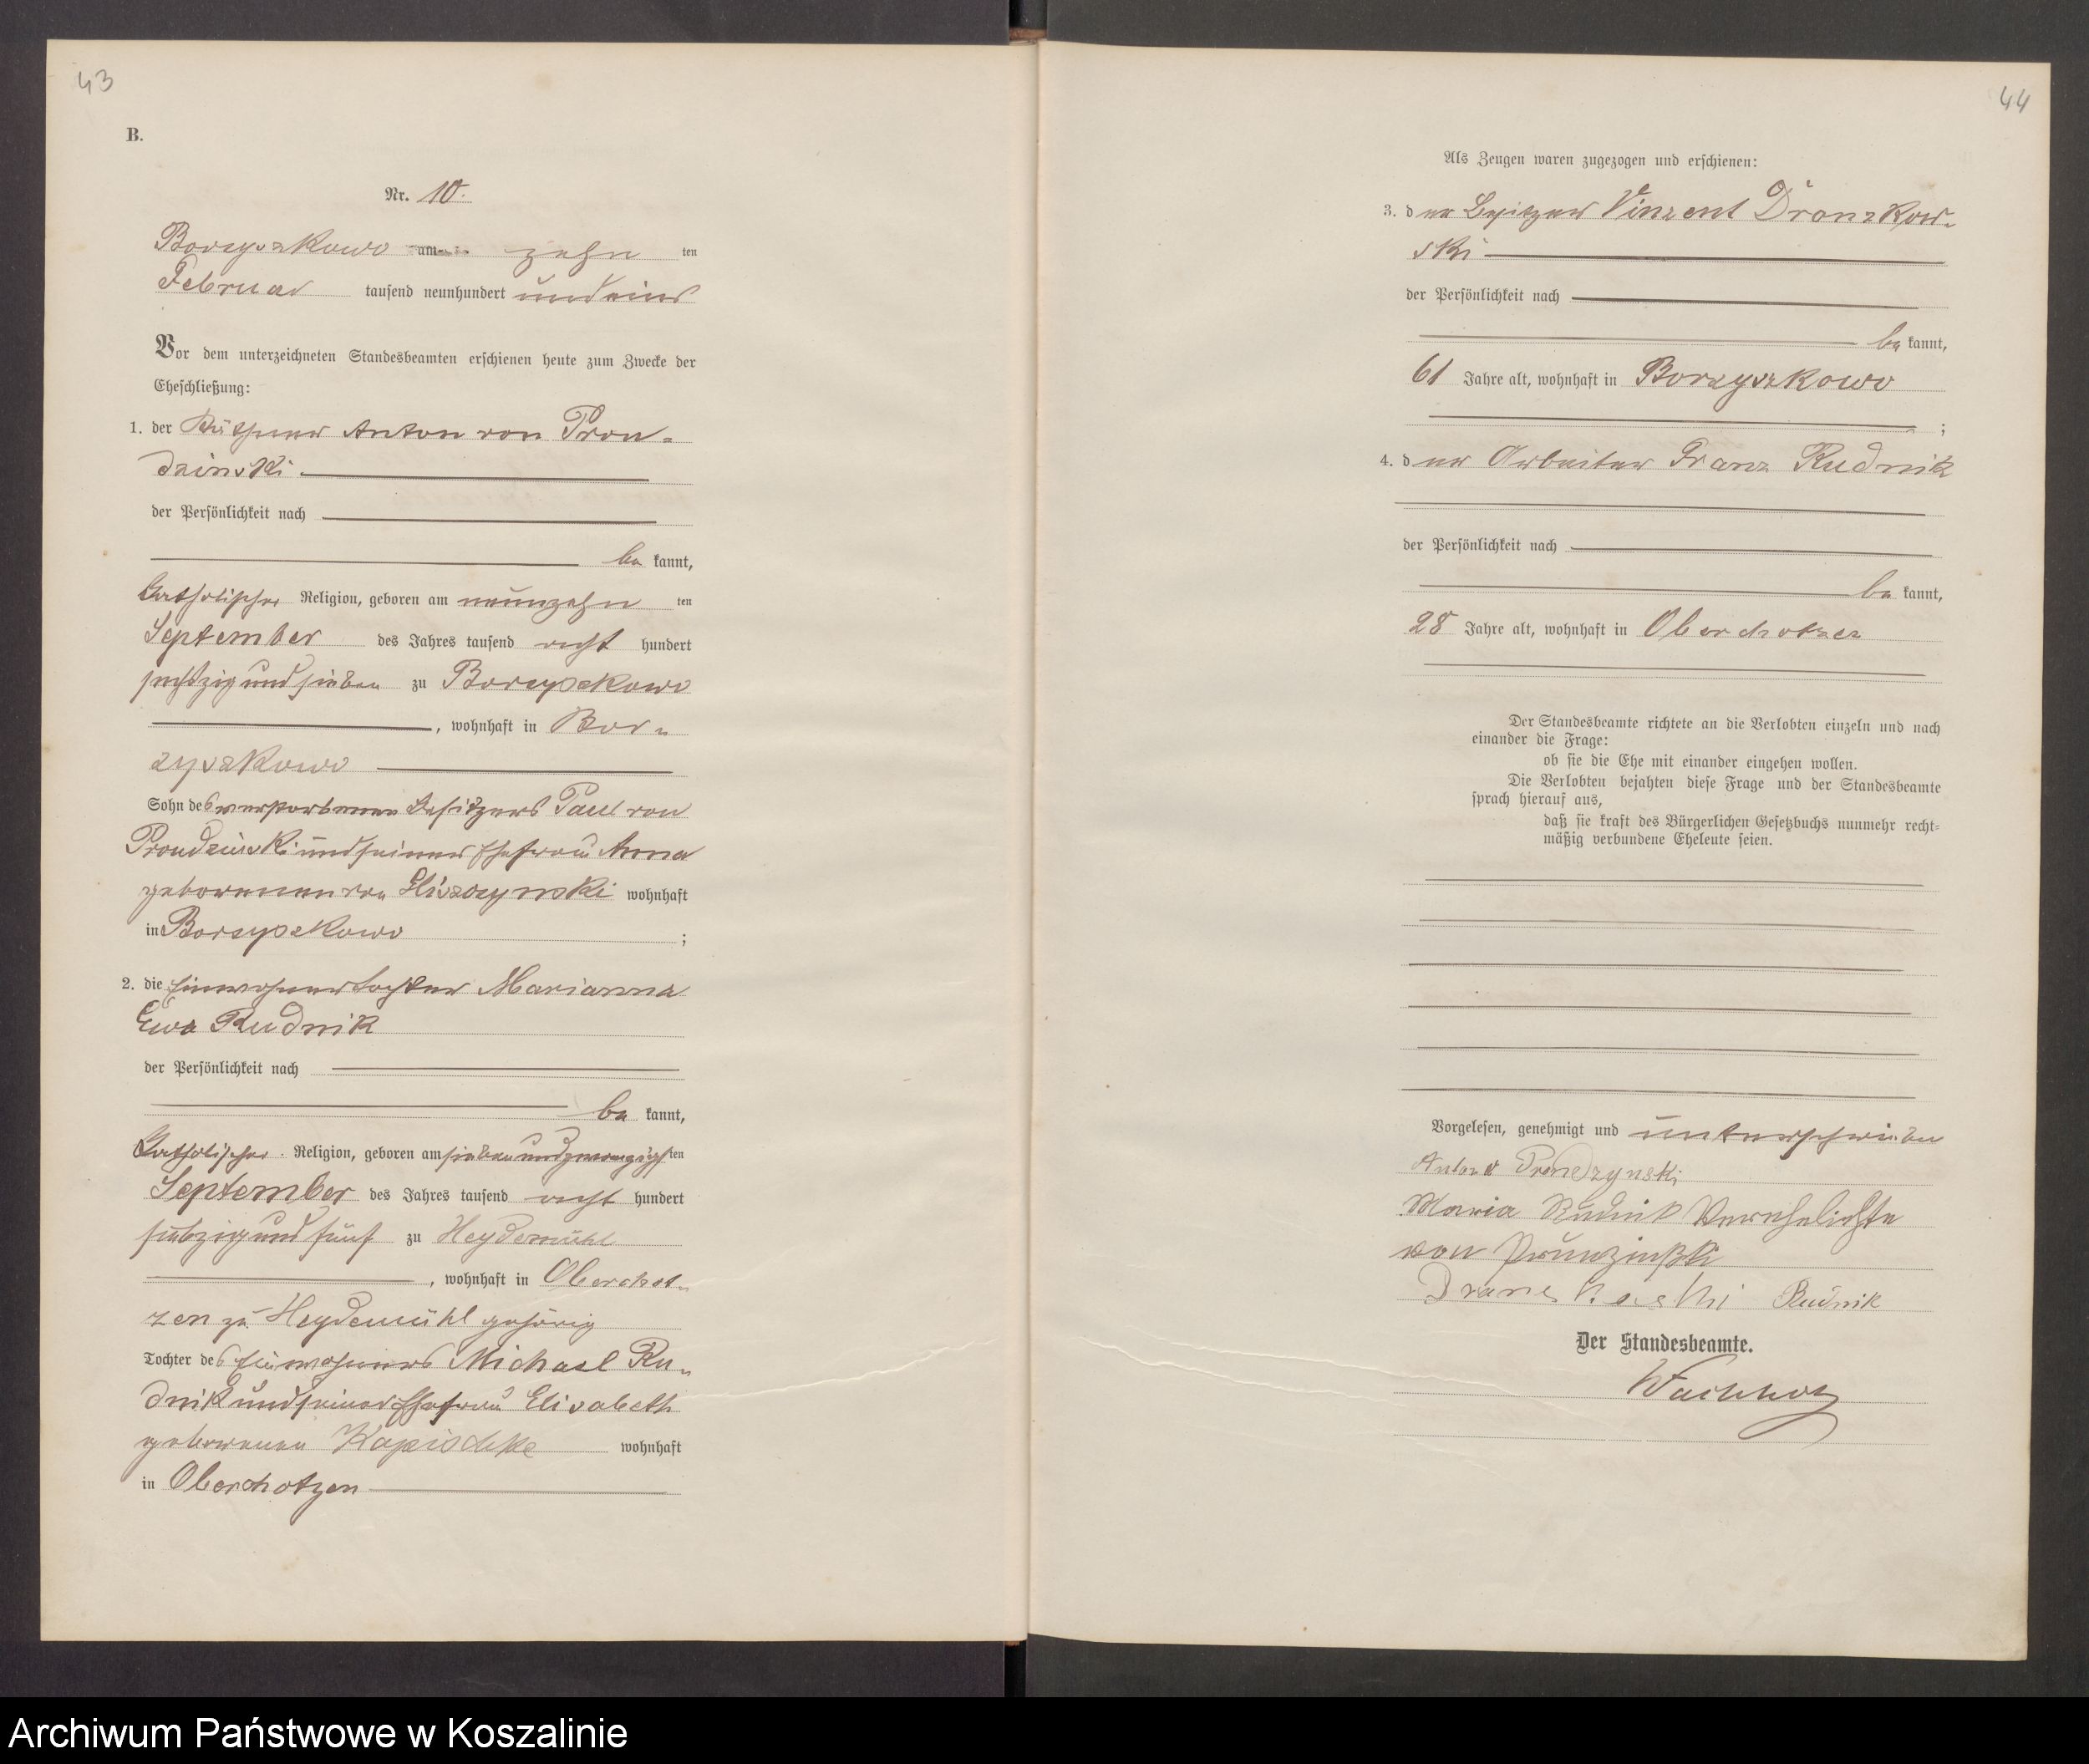 43
B.
Nr. 10.
Borzyszkowo am zehn ten
Februar tausend neunhundert und eins
Vor dem unterzeichneten Standesbeamten erschienen heute zum Zwecke der
Eheschließung:
1. der Büdner Anton von Pron-
dzinski
der Persönlichkeit nach
be kannt,
katholischer Religion, geboren am neunzehn ten
September des Jahres tausend acht hundert
sechszig und sieben zu Borzyszkowo
, wohnhaft in Bor-
zyszkowo
Sohn des verstorbenen Besitzers Paul von
Prondzinski und seiner Ehefrau Anna
geborenen von wohnhaft
in Borzyszkowo ;
2. die Einwohnertochter Marianna
Ewa Rudnik
der Persönlichkeit nach
be kannt,
katholischer Religion, geboren am sieben und zwanzigsten
September des Jahres tausend acht hundert
siebzig und fünf zu Heydemühl
, wohnhaft in Oberchot-
zen zu Heydemühl gehörig
Tochter des Einwohners Michael Ru-
dnik und seiner Ehefrau Elisabeth
geborenen Kapischke wohnhaft
in Oberchotzen
44
Als Zeugen waren zugezogen und erschienen:
3. der Besitzer Vinzent Dronzkow-
ski
der Persönlichkeit nach
be kannt,
61 Jahre alt, wohnhaft in Borzyszkowo
;
4. der Arbeiter Franz Rudnik
der Persönlichkeit nach
be kannt,
28 Jahre alt, wohnhaft in Oberchotzen
Der Standesbeamte richtete an die Verlobten einzeln und nach
einander die Frage:
ob sie die Ehe mit einander eingehen wollen.
Die Verlobten bejahten diese Frage und der Standesbeamte
sprach hierauf aus,
daß sie kraft des Bürgerlichen Gesetzbuchs nunmehr recht-
mäßig verbundene Eheleute seien.
Vorgelesen, genehmigt und unterschrieben
Anton v Prondzynski
Maria Rudnik Verehelichte
von
Rudnik
Der Standesbeamte.
Wachholz
Archiwum Państwowe w Koszalinie